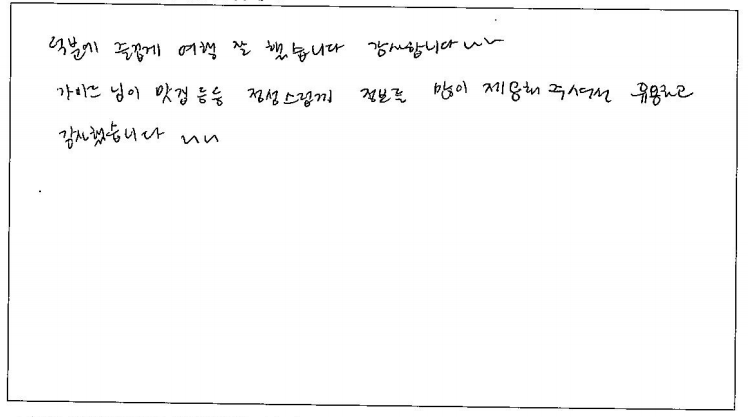 덕분에 즐겁게 여행 잘 했습니다 감사합니다 ~~
가이드 님이 맛집 등등 정성스럽게 정보를 많이 제공해 주셔서 유용하고
감사했습니다 ~~